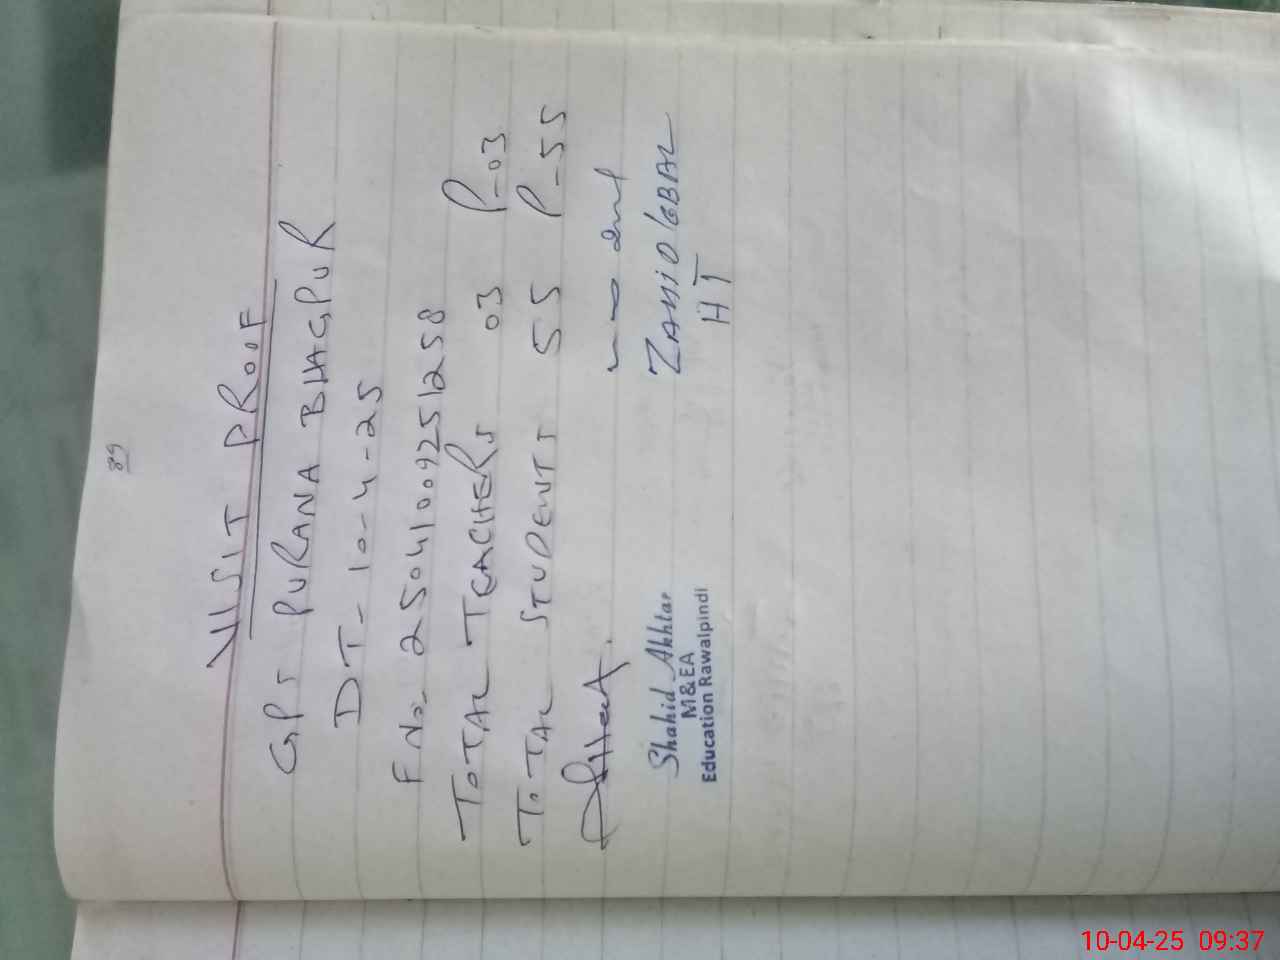 89
VISIT PROOF
GPS PURANA BHAGPUR
DT- 10-4-25
F No- 25041009251258
TOTAL TEACHERS 03 P-03
TOTAL STUDENTS 55 P-55
Shahid Akhtar
M&EA
Education Rawalpindi
ZAHID IQBAL
HT
10-04-25 09:37